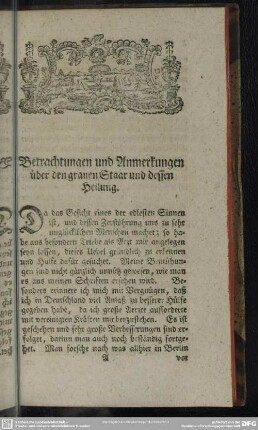 Betrachtungen und Anmerkungen
über den grauen Staar und dessen
Heilung.
Da das Gesicht eines der edlesten Sinnen
ist, und dessen Zerstöhrung uns zu sehr
unglücklichen Menschen machet; so ha-
be aus besonderm Triebe als Arzt mir angelegen
seyn lassen, dieses Uebel gründlich zu erkennen
und Hülfe dafür gesuchet. Meine Bemühun-
gen sind nicht gänzlich unnütz gewesen, wie man
es aus meinen Schriften ersehen wird. Be-
sonders erinnere ich mich mit Vergnügen, daß
ich in Deutschland viel Anlaß zu besserer Hülfe
gegeben habe, da ich große Aerzte aufforderte
mit vereinigten Kräften mir beyzustehen. Es ist
geschehen und sehr große Verbesserungen sind er-
folget, darinn man auch noch beständig fortge-
het. Man forsche nach was allhier in Berlin
A vor